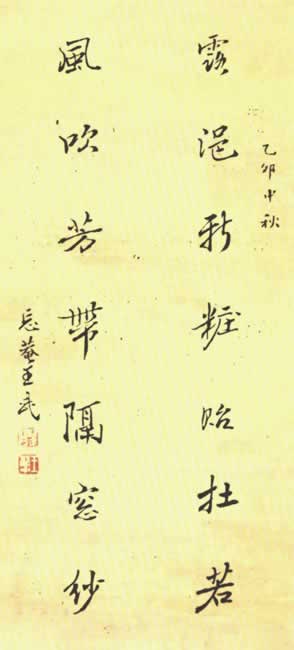 乙卯中秋
露浥新粧貽杜若
風吹芳帶隔窓紗
忘菴王武